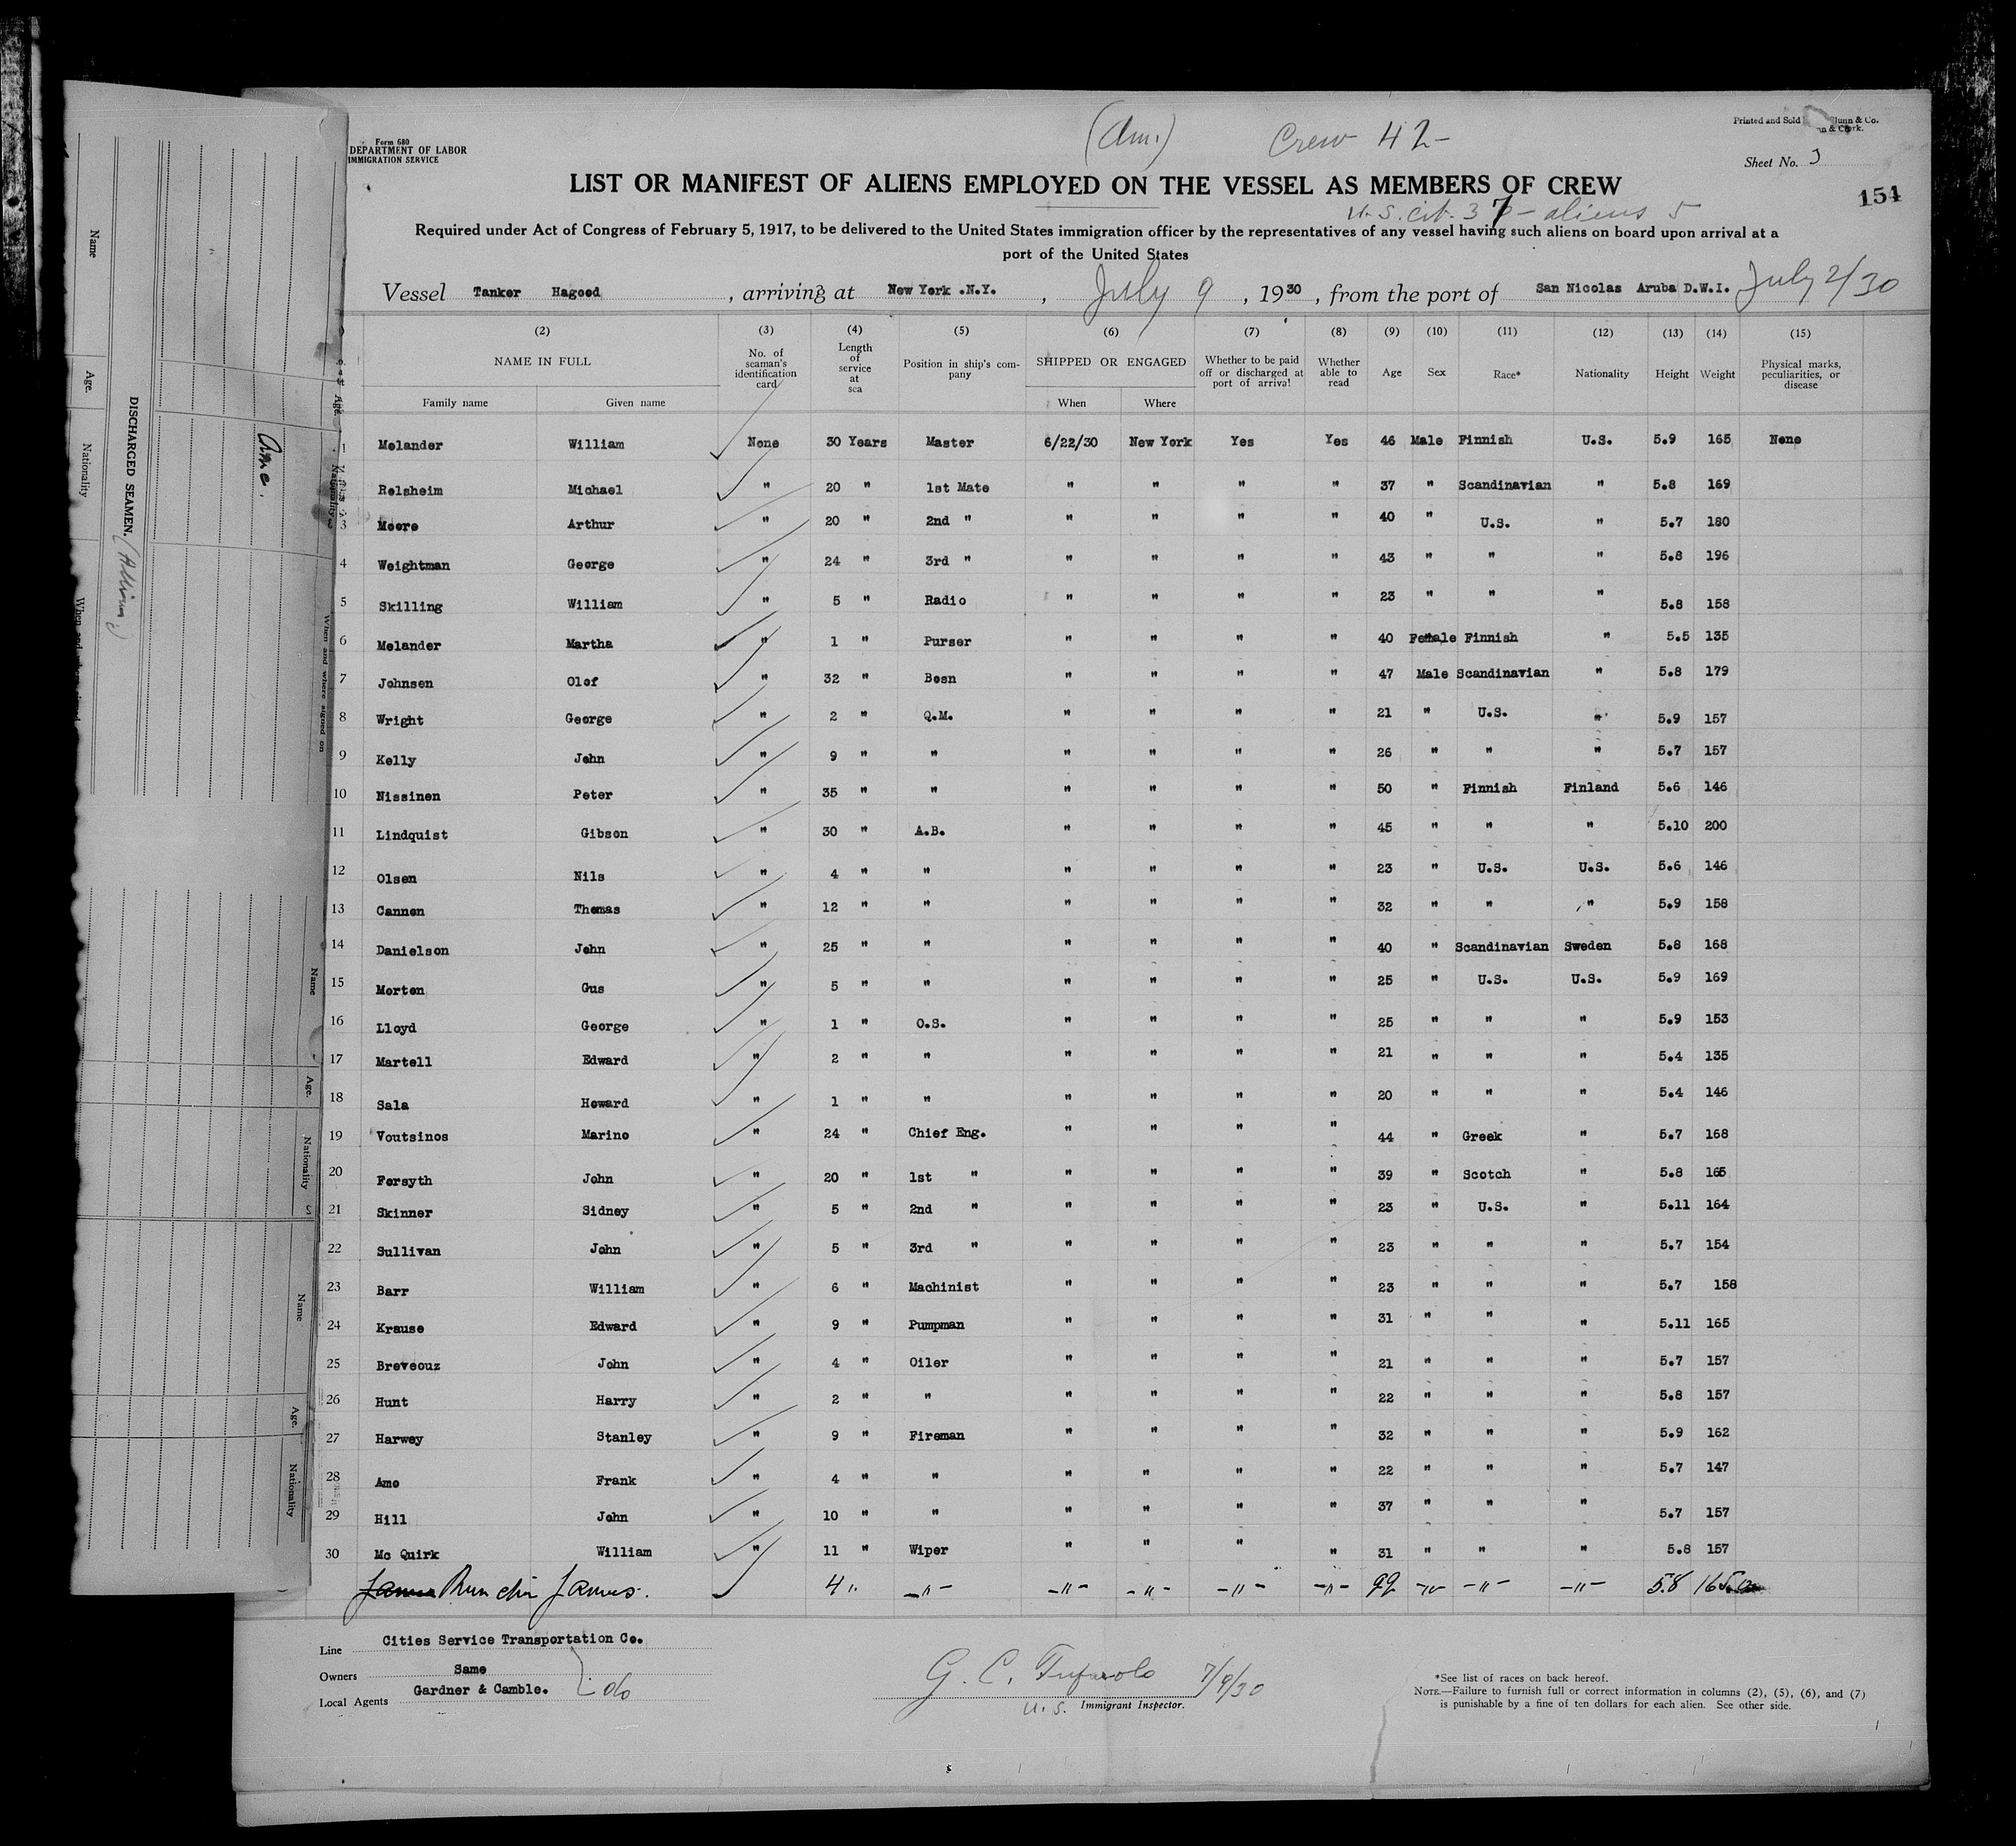 Form 680
DEPARTMENT OF LABOR
IMMIGRATION SERVICE
(Am.)
Crew 42-
Printed and Sold Bunn & Co.
Sheet No. 3
154
LIST OR MANIFEST OF ALIENS EMPLOYED ON THE VESSEL AS MEMBERS OF CREW
U.S. cit. 37 - aliens 5
Required under Act of Congress of February 5, 1917, to be delivered to the United States immigration officer by the representatives of any vessel having such aliens on board upon arrival at a
port of the United States
Vessel Tanker Hagood , arriving at New York .N.Y. , July 9 , 1930 , from the port of San Nicolas Aruba D.W.I. July 2/30
(2) (3) (4) (5) (6) (7) (8) (9) (10) (11) (12) (13) (14) (15)
NAME IN FULL No. of seaman's identification card Length of service at sea Position in ship's company SHIPPED OR ENGAGED Whether to be paid off or discharged at port of arrival Whether able to read Age Sex Race* Nationality Height Weight Physical marks, peculiarities, or disease
Family name Given name When Where
1 Melander William None 30 Years Master 6/22/30 New York Yes Yes 46 Male Finnish U.S. 5.9 165 None
Relsheim Michael " 20 " 1st Mate " " " " 37 " Scandinavian " 5.8 169
3 Moore Arthur " 20 " 2nd " " " " " 40 " U.S. " 5.7 180
4 Weightman George " 24 " 3rd " " " " " 43 " " " 5.8 196
5 Skilling William " 5 " Radio " " " " 23 " " " 5.8 158
6 Melander Martha " 1 " Purser " " " " 40 Female Finnish " 5.5 135
7 Johnsen Olof " 32 " Bosn " " " " 47 Male Scandinavian " 5.8 179
8 Wright George " 2 " Q.M. " " " " 21 " U.S. " 5.9 157
9 Kelly John " 9 " " " " " " 26 " " " 5.7 157
10 Nissinen Peter " 35 " " " " " " 50 " Finnish Finland 5.6 146
11 Lindquist Gibson " 30 " A.B. " " " " 45 " " " 5.10 200
12 Olsen Nils " 4 " " " " " " 23 " U.S. U.S. 5.6 146
13 Cannon Thomas " 12 " " " " " " 32 " " " 5.9 158
14 Danielson John " 25 " " " " " " 40 " Scandinavian Sweden 5.8 168
15 Morton Gus " 5 " " " " " " 25 " U.S. U.S. 5.9 169
16 Lloyd George " 1 " O.S. " " " " 25 " " " 5.9 153
17 Martell Edward " 2 " " " " " " 21 " " " 5.4 135
18 Sala Howard " 1 " " " " " " 20 " " " 5.4 146
19 Voutsinos Marino " 24 " Chief Eng. " " " " 44 " Greek " 5.7 168
20 Forsyth John " 20 " 1st " " " " " 39 " Scotch " 5.8 165
21 Skinner Sidney " 5 " 2nd " " " " " 23 " U.S. " 5.11 164
22 Sullivan John " 5 " 3rd " " " " " 23 " " " 5.7 154
23 Barr William " 6 " Machinist " " " " 23 " " " 5.7 158
24 Krause Edward " 9 " Pumpman " " " " 31 " " " 5.11 165
25 Breveouz John " 4 " Oiler " " " " 21 " " " 5.7 157
26 Hunt Harry " 2 " " " " " " 22 " " " 5.8 157
27 Harwey Stanley " 9 " Fireman " " " " 32 " " " 5.9 162
28 Amo Frank " 4 " " " " " " 22 " " " 5.7 147
29 Hill John " 10 " " " " " " 37 " " " 5.7 157
30 Mc Quirk William " 11 " Wiper " " " " 31 " " " 5.8 157
James. 4 " -"- -"- -"- -"- -"- 22 -"- -"- -"- 5.8 165
Line Cities Service Transportation Co.
Owners Same
Local Agents Gardner & Camble. do
G. C. 7/9/30
U.S. Immigrant Inspector.
*See list of races on back hereof.
NOTE.—Failure to furnish full or correct information in columns (2), (5), (6), and (7)
is punishable by a fine of ten dollars for each alien. See other side.
DISCHARGED SEAMEN.
Name
Age.
Nationality
When and where signed on
Name
Age.
Nationality
Name
Age.
Nationality